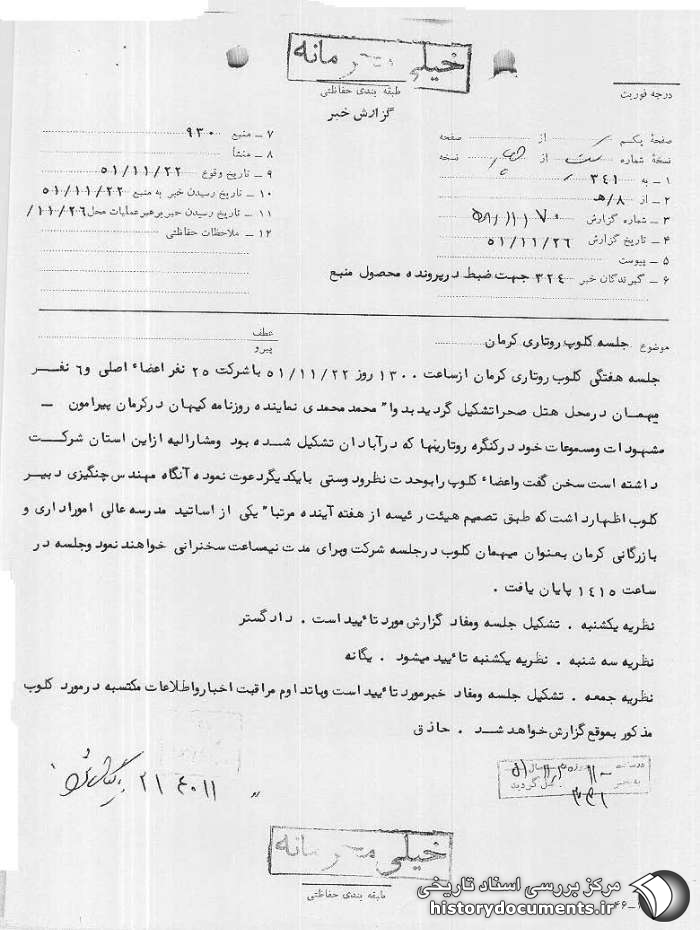 خیلی محرمانه
طبقه بندی حفاظتی
گزارش خبر
درجه فوریت
صفحهٔ یکم از صفحه
نسخهٔ شماره از نسخه
۱ ـ به ۳٤۱
۲ ـ از ۸/هـ
۳ ـ شماره گزارش
٤ ـ تاریخ گزارش ۵۱/۱۱/۲۶
۵ ـ پیوست
۶ ـ گیرندگان خبر ۳۲٤ جهت ضبط در پرونده محصول منبع
۷ ـ منبع ۹۳۰
۸ ـ منشأ
۹ ـ تاریخ وقوع ۵۱/۱۱/۲۲
۱۰ ـ تاریخ رسیدن خبر به منبع ۵۱/۱۱/۲۲
۱۱ ـ تاریخ رسیدن خبر به رهبر عملیات محل ۱۱/۲۶/
۱۲ ـ ملاحظات حفاظتی
موضوع جلسه کلوپ روتاری کرمان
عطف
پیرو
جلسه هفتگی کلوب روتاری کرمان از ساعت ۱۳۰۰ روز ۵۱/۱۱/۲۲ با شرکت ۲۵ نفر اعضاء اصلی و ۶ نفر
میهمان در محل هتل صحرا تشکیل گردید بدوا" محمد محمدی نماینده روزنامه کیهان در کرمان پیرامون ـ
مشهودات و مسموعات خود در کنگره روتارینها که در آبادان تشکیل شده بود و مشارالیه از این استان شرکت
داشته است سخن گفت و اعضاء کلوپ را بوحدت نظر و دوستی با یکدیگر دعوت نموده آنگاه مهندس چنگیزی دبیر
کلوب اظهار داشت که طبق تصمیم هیئت رئیسه از هفته آینده مرتبا" یکی از اساتید مدرسه عالی امور اداری و
بازرگانی کرمان بعنوان میهمان کلوب در جلسه شرکت و برای مدت نیمساعت سخنرانی خواهند نمود و جلسه در
ساعت ۱٤۱۵ پایان یافت .
نظریه یکشنبه . تشکیل جلسه و مفاد گزارش مورد تائید است . دادگستر
نظریه سه شنبه . نظریه یکشنبه تائید میشود . یگانه
نظریه جمعه . تشکیل جلسه و مفاد خبر مورد تائید است و با تداوم مراقبت اخبار و اطلاعات مکتسبه در مورد کلوب
مذکور بموقع گزارش خواهد شد . حاذق
خیلی محرمانه
طبقه بندی حفاظتی
مرکز بررسی اسناد تاریخی
historydocuments.ir